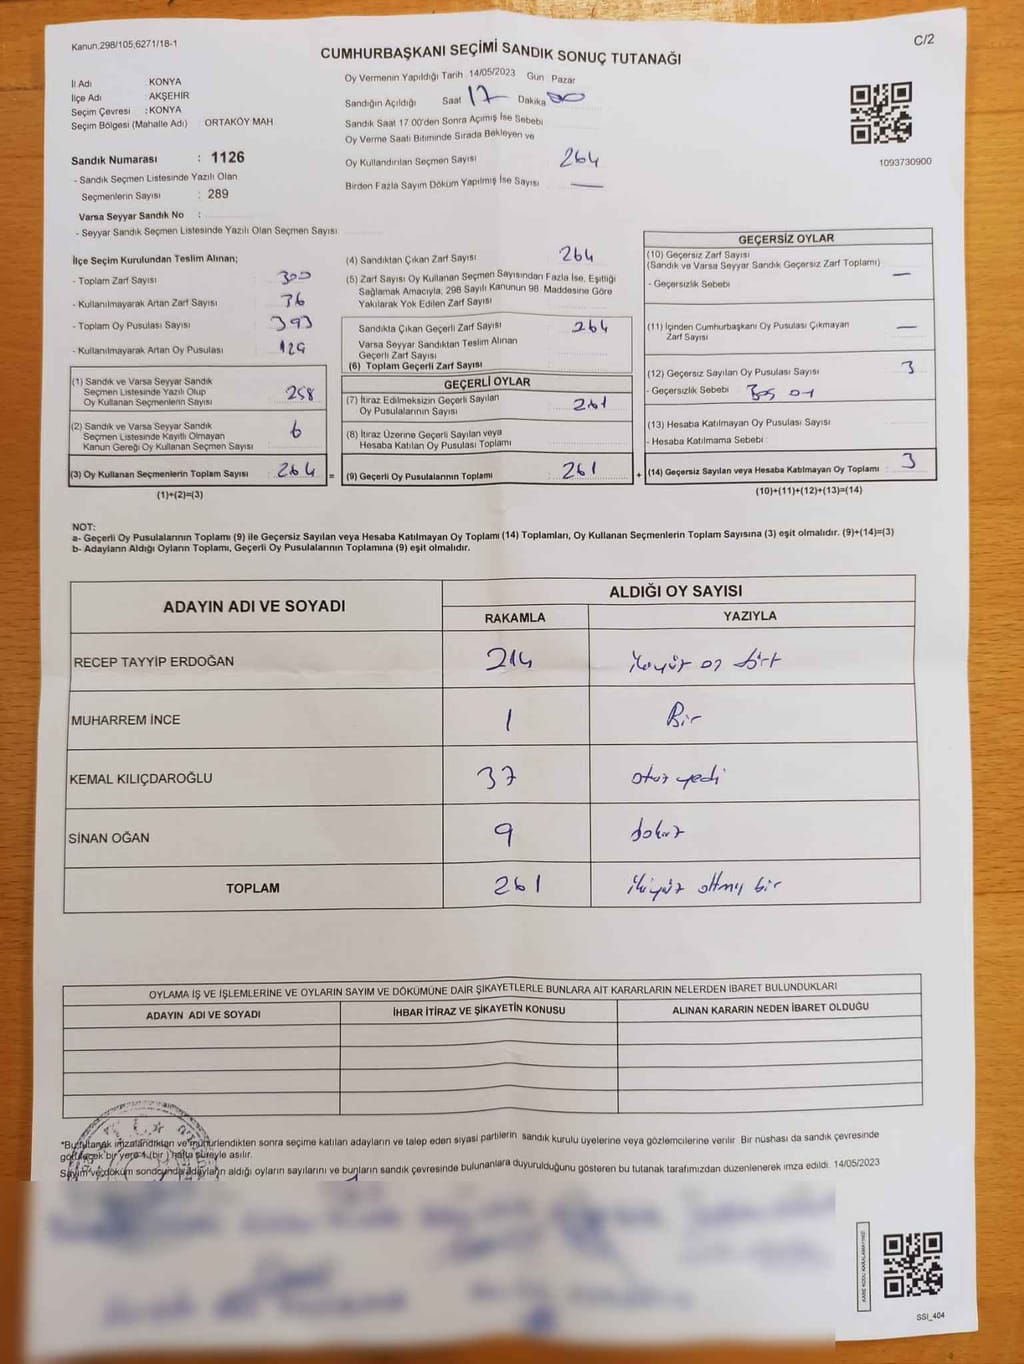 Kanun,298/105,6271/18-1
C/2
CUMHURBAŞKANI SEÇİMİ SANDIK SONUÇ TUTANAĞI
İl Adı KONYA
İlçe Adı AKŞEHİR
Seçim Çevresi : KONYA
Seçim Bölgesi (Mahalle Adı) ORTAKÖY MAH.
Sandık Numarası : 1126
- Sandık Seçmen Listesinde Yazılı Olan
Seçmenlerin Sayısı : 289
Varsa Seyyar Sandık No :
- Seyyar Sandık Seçmen Listesinde Yazılı Olan Seçmen Sayısı
Oy Vermenin Yapıldığı Tarih 14/05/2023 Gün Pazar
Sandığın Açıldığı Saat 17 Dakika 00
Sandık Saat 17.00'den Sonra Açımış İse Sebebi
Oy Verme Saati Bitiminde Sırada Bekleyen ve
Oy Kullandırılan Seçmen Sayısı 264
Birden Fazla Sayım Döküm Yapılmış İse Sayısı —
1093730900
İlçe Seçim Kurulundan Teslim Alınan;
- Toplam Zarf Sayısı 300
- Kullanılmayarak Artan Zarf Sayısı 36
- Toplam Oy Pusulası Sayısı 393
- Kullanılmayarak Artan Oy Pusulası 129
(1) Sandık ve Varsa Seyyar Sandık
Seçmen Listesinde Yazılı Olup
Oy Kullanan Seçmenlerin Sayısı 258
(2) Sandık ve Varsa Seyyar Sandık
Seçmen Listesinde Kayıtlı Olmayan
Kanun Gereği Oy Kullanan Seçmen Sayısı 6
(3) Oy Kullanan Seçmenlerin Toplam Sayısı 264 =
(1)+(2)=(3)
(4) Sandıktan Çıkan Zarf Sayısı 264
(5) Zarf Sayısı Oy Kullanan Seçmen Sayısından Fazla İse, Eşitliği
Sağlamak Amacıyla, 298 Sayılı Kanunun 98. Maddesine Göre
Yakılarak Yok Edilen Zarf Sayısı
Sandıkta Çıkan Geçerli Zarf Sayısı 264
Varsa Seyyar Sandıktan Teslim Alınan
Geçerli Zarf Sayısı
(6) Toplam Geçerli Zarf Sayısı
GEÇERLİ OYLAR
(7) İtiraz Edilmeksizin Geçerli Sayılan
Oy Pusulalarının Sayısı 261
(8) İtiraz Üzerine Geçerli Sayılan veya
Hesaba Katılan Oy Pusulası Toplamı
(9) Geçerli Oy Pusulalarının Toplamı 261 +
GEÇERSİZ OYLAR
(10) Geçersiz Zarf Sayısı
(Sandık ve Varsa Seyyar Sandık Geçersiz Zarf Toplamı) —
- Geçersizlik Sebebi
(11) İçinden Cumhurbaşkanı Oy Pusulası Çıkmayan —
Zarf Sayısı
(12) Geçersiz Sayılan Oy Pusulası Sayısı 3
- Geçersizlik Sebebi
(13) Hesaba Katılmayan Oy Pusulası Sayısı
- Hesaba Katılmama Sebebi
(14) Geçersiz Sayılan veya Hesaba Katılmayan Oy Toplamı 3
(10)+(11)+(12)+(13)=(14)
NOT:
a- Geçerli Oy Pusulalarının Toplamı (9) ile Geçersiz Sayılan veya Hesaba Katılmayan Oy Toplamı (14) Toplamları, Oy Kullanan Seçmenlerin Toplam Sayısına (3) eşit olmalıdır. (9)+(14)=(3)
b- Adayların Aldığı Oyların Toplamı, Geçerli Oy Pusulalarının Toplamına (9) eşit olmalıdır.
ADAYIN ADI VE SOYADI
ALDIĞI OY SAYISI
RAKAMLA YAZIYLA
RECEP TAYYİP ERDOĞAN 214
MUHARREM İNCE 1 Bir
KEMAL KILIÇDAROĞLU 37 otuz yedi
SİNAN OĞAN 9 dokuz
TOPLAM 261 ikiyüz altmış bir
OYLAMA İŞ VE İŞLEMLERİNE VE OYLARIN SAYIM VE DÖKÜMÜNE DAİR ŞİKAYETLERLE BUNLARA AİT KARARLARIN NELERDEN İBARET BULUNDUKLARI
ADAYIN ADI VE SOYADI İHBAR İTİRAZ VE ŞİKAYETİN KONUSU ALINAN KARARIN NEDEN İBARET OLDUĞU
*Bu tutanak imzalandıktan ve mühürlendikten sonra seçime katılan adayların ve talep eden siyasi partilerin sandık kurulu üyelerine veya gözlemcilerine verilir. Bir nüshası da sandık çevresinde
görülecek bir yere 1 (bir) hafta süreyle asılır.
Sayım ve döküm sonucunda adayların aldığı oyların sayılarını ve bunların sandık çevresinde bulunanlara duyurulduğunu gösteren bu tutanak tarafımızdan düzenlenerek imza edildi. 14/05/2023
KARE KODU KARALAMAYINIZ!
SSI_404